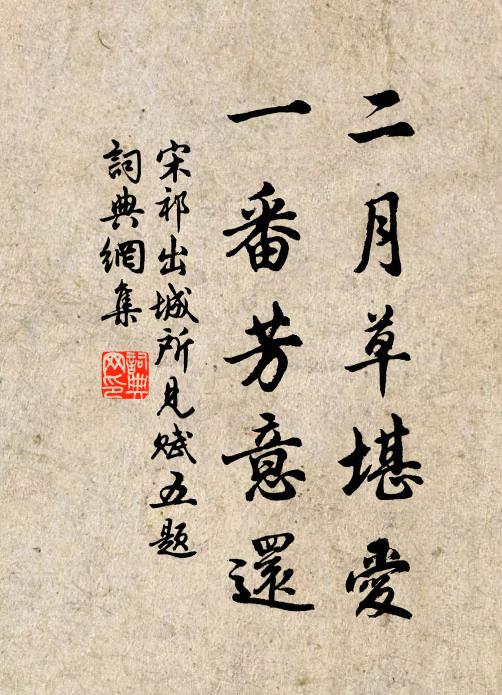 二月草堪愛
一番芳意還
宋祁出城所見賦五題
詞典網集
詞典網印